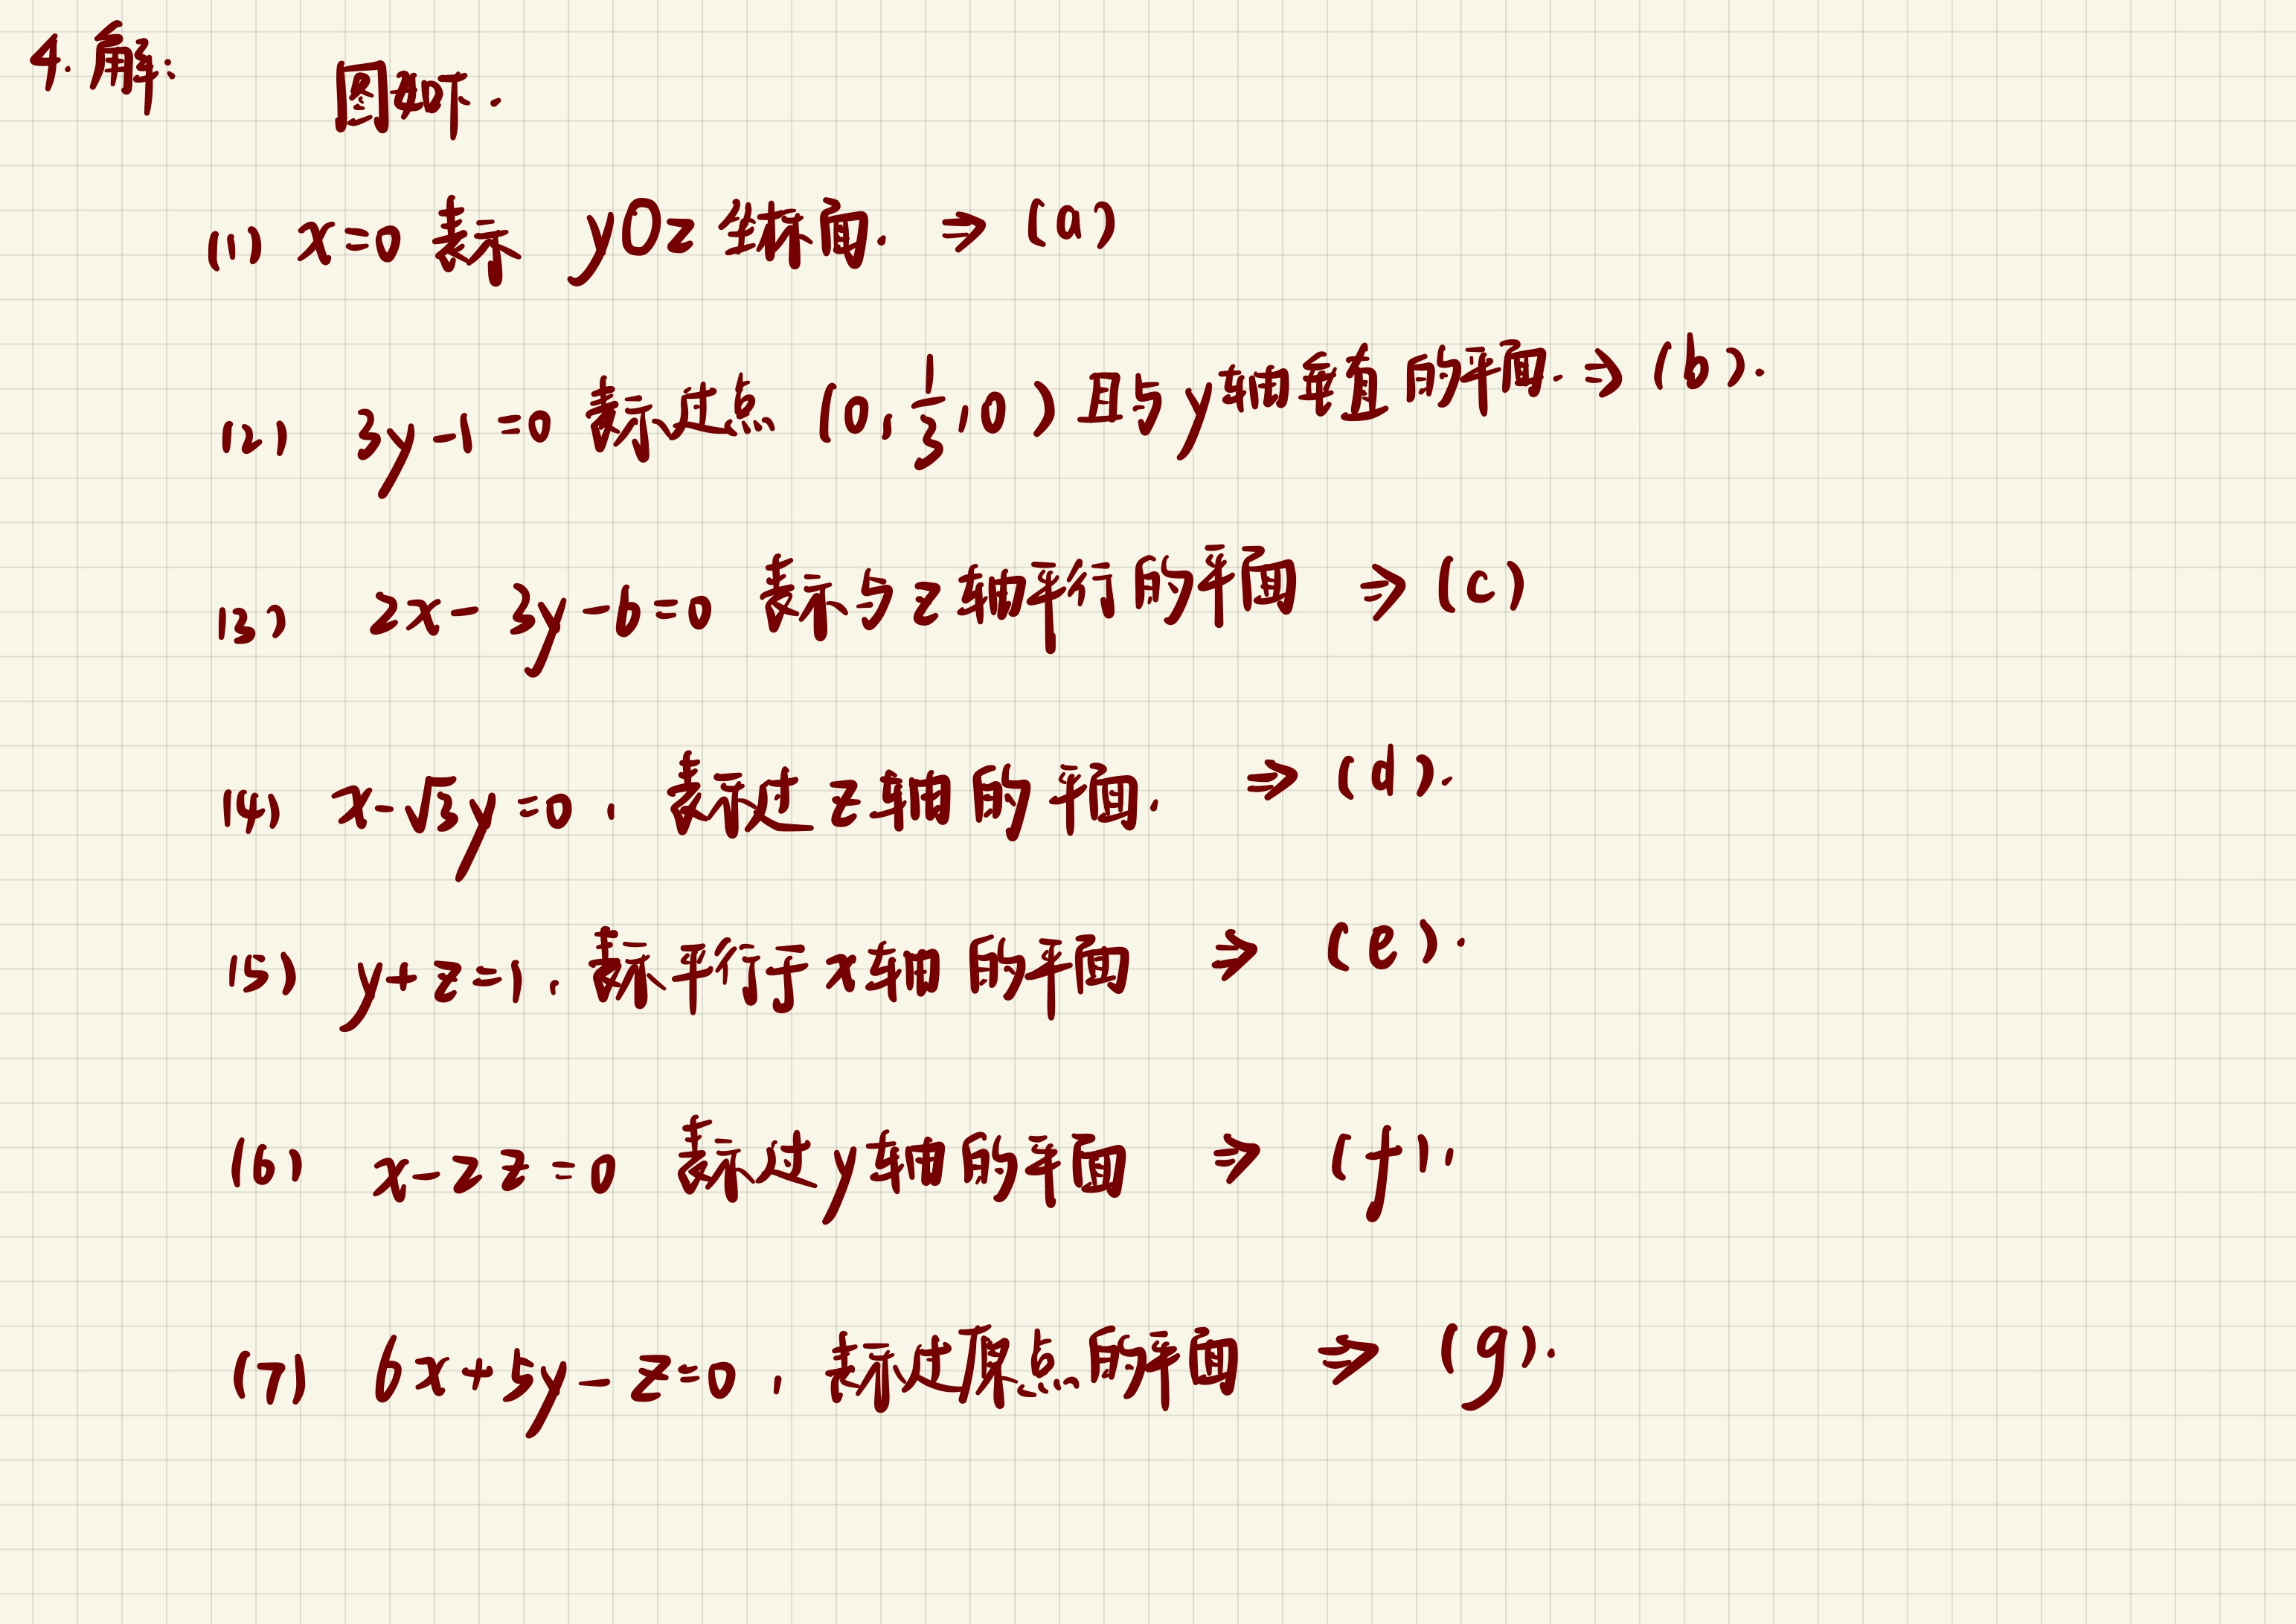 4. 解:
图如下.
(1) x=0 表示 yOz 坐标面. ⇒ (a)
(2) 3y-1=0 表示过点 (0, 1/3, 0) 且与y轴垂直的平面. ⇒ (b).
(3) 2x-3y-6=0 表示与z轴平行的平面 ⇒ (c)
(4) x-√3y=0, 表示过z轴的平面. ⇒ (d).
(5) y+z=1, 表示平行于x轴的平面 ⇒ (e).
(6) x-2z=0 表示过y轴的平面 ⇒ (f).
(7) 6x+5y-z=0, 表示过原点的平面 ⇒ (g).